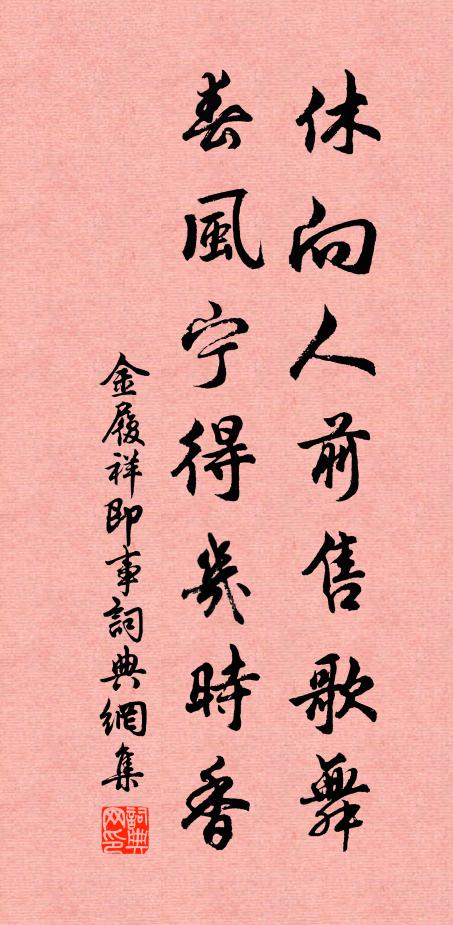 休向人前售歌舞
春風宁得幾時香
金履祥即事詞典網集
詞典网印